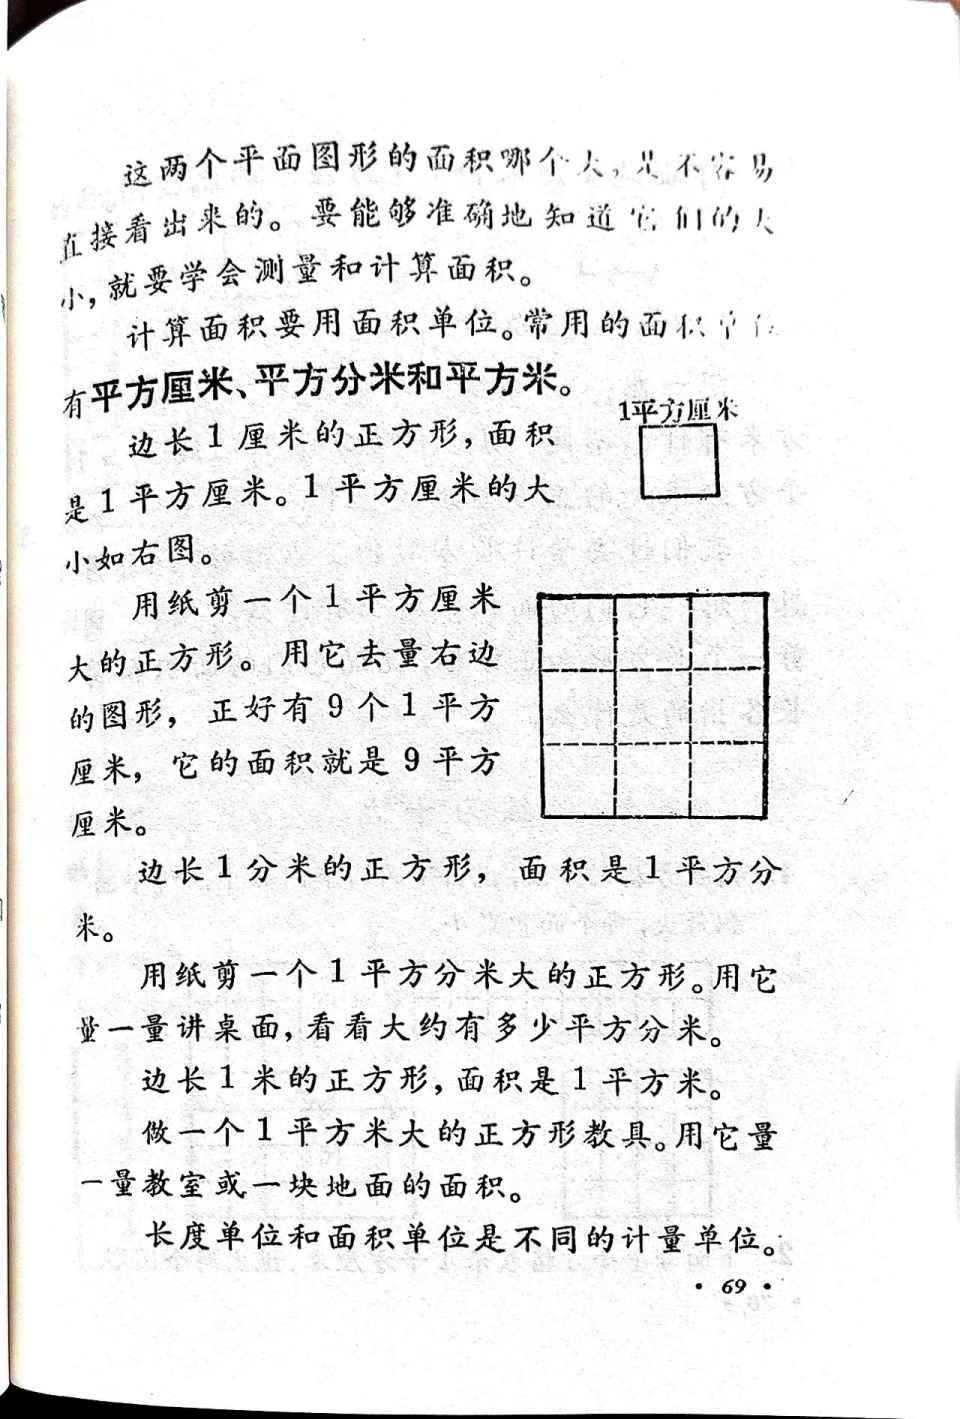 这两个平面图形的面积哪个大，是不容易
直接看出来的。要能够准确地知道它们的大
小，就要学会测量和计算面积。
计算面积要用面积单位。常用的面积单位
有平方厘米、平方分米和平方米。
边长1厘米的正方形，面积
是1平方厘米。1平方厘米的大
小如右图。
1平方厘米
用纸剪一个1平方厘米
大的正方形。用它去量右边
的图形，正好有9个1平方
厘米，它的面积就是9平方
厘米。
边长1分米的正方形，面积是1平方分
米。
用纸剪一个1平方分米大的正方形。用它
量一量讲桌面，看看大约有多少平方分米。
边长1米的正方形，面积是1平方米。
做一个1平方米大的正方形教具。用它量
一量教室或一块地面的面积。
长度单位和面积单位是不同的计量单位。
· 69 ·